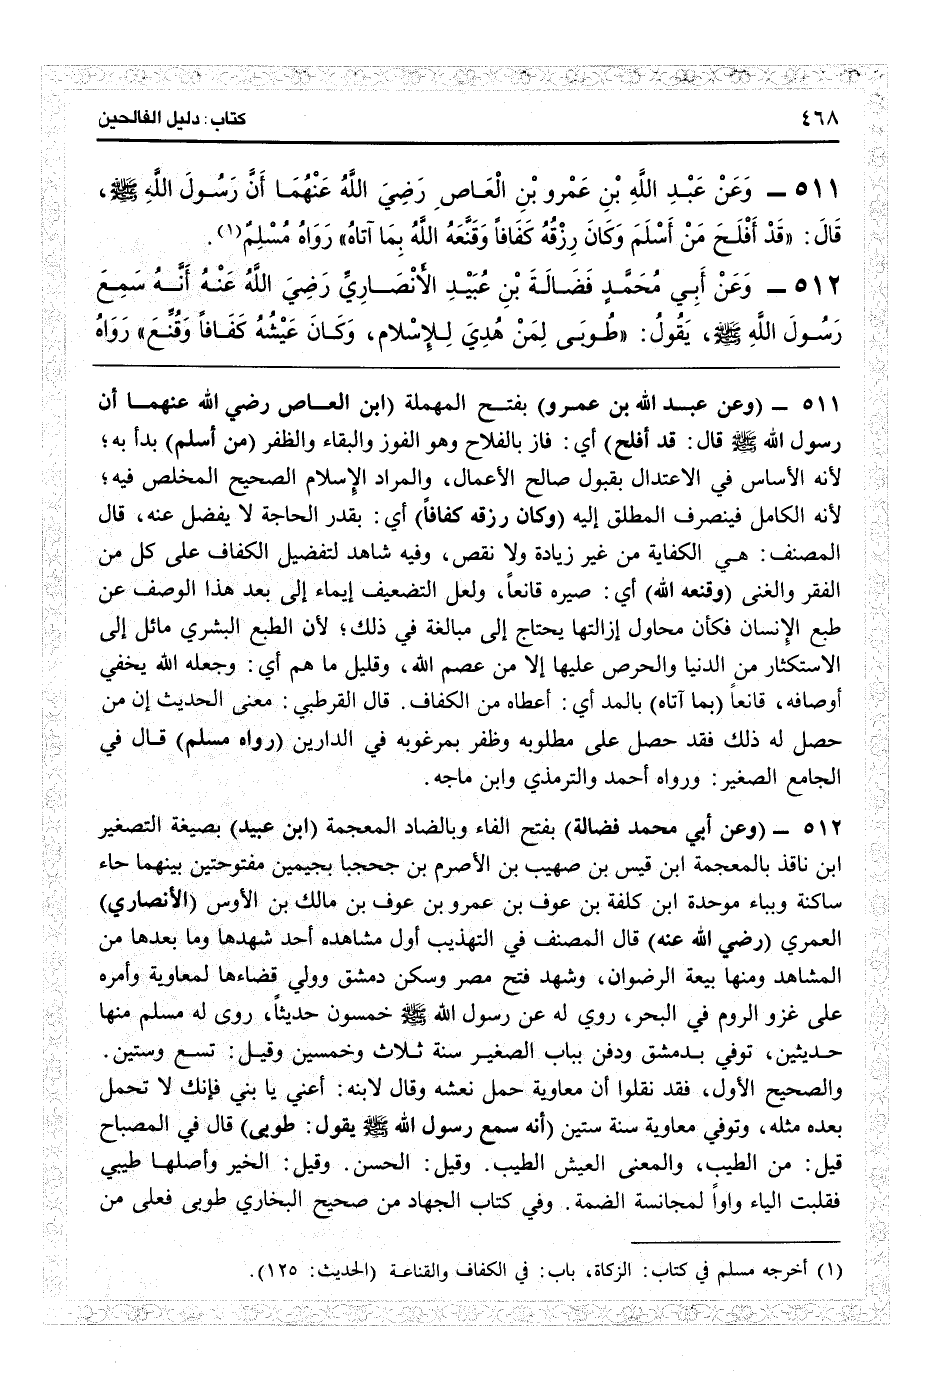 ٤٦٨
كتاب: دليل الفالحين
٥١١ – وَعَنْ عَبْدِ اللَّهِ بْنِ عَمْرِو بْنِ الْعَاصِ رَضِيَ اللَّهُ عَنْهُمَا أَنَّ رَسُولَ اللَّهِ ﷺ،
قَالَ: «قَدْ أَفْلَحَ مَنْ أَسْلَمَ وَكَانَ رِزْقُهُ كَفَافاً وَقَنَّعَهُ اللَّهُ بِمَا آتَاهُ» رَوَاهُ مُسْلِمٌ(١).
٥١٢ – وَعَنْ أَبِي مُحَمَّدٍ فَضَالَةَ بْنِ عُبَيْدٍ الأَنْصَارِيِّ رَضِيَ اللَّهُ عَنْهُ أَنَّهُ سَمِعَ
رَسُولَ اللَّهِ ﷺ، يَقُولُ: «طُوبَى لِمَنْ هُدِيَ لِلإِسْلامِ، وَكَانَ عَيْشُهُ كَفَافاً وَقُنِّعَ» رَوَاهُ
٥١١ – (وعن عبد الله بن عمرو) بفتح المهملة (ابن العاص رضي الله عنهما أن
رسول الله ﷺ قال: قد أفلح) أي: فاز بالفلاح وهو الفوز والبقاء والظفر (من أسلم) بدأ به؛
لأنه الأساس في الاعتدال بقبول صالح الأعمال، والمراد الإسلام الصحيح المخلص فيه؛
لأنه الكامل فينصرف المطلق إليه (وكان رزقه كفافاً) أي: بقدر الحاجة لا يفضل عنه، قال
المصنف: هي الكفاية من غير زيادة ولا نقص، وفيه شاهد لتفضيل الكفاف على كل من
الفقر والغنى (وقنعه الله) أي: صيره قانعاً، ولعل التضعيف إيماء إلى بعد هذا الوصف عن
طبع الإنسان فكأن محاول إزالتها يحتاج إلى مبالغة في ذلك؛ لأن الطبع البشري مائل إلى
الاستكثار من الدنيا والحرص عليها إلا من عصم الله، وقليل ما هم أي: وجعله الله يخفي
أوصافه، قانعاً (بما آتاه) بالمد أي: أعطاه من الكفاف. قال القرطبي: معنى الحديث إن من
حصل له ذلك فقد حصل على مطلوبه وظفر بمرغوبه في الدارين (رواه مسلم) قال في
الجامع الصغير: ورواه أحمد والترمذي وابن ماجه.
٥١٢ – (وعن أبي محمد فضالة) بفتح الفاء وبالضاد المعجمة (ابن عبيد) بصيغة التصغير
ابن ناقذ بالمعجمة ابن قيس بن صهيب بن الأصرم بن جحجبا بجيمين مفتوحتين بينهما حاء
ساكنة وبباء موحدة ابن كلفة بن عوف بن عمرو بن عوف بن مالك بن الأوس (الأنصاري)
العمري (رضي الله عنه) قال المصنف في التهذيب أول مشاهده أحد شهدها وما بعدها من
المشاهد ومنها بيعة الرضوان، وشهد فتح مصر وسكن دمشق وولي قضاءها لمعاوية وأمره
على غزو الروم في البحر، روي له عن رسول الله ﷺ خمسون حديثاً، روى له مسلم منها
حديثين، توفي بدمشق ودفن بباب الصغير سنة ثلاث وخمسين وقيل: تسع وستين.
والصحيح الأول، فقد نقلوا أن معاوية حمل نعشه وقال لابنه: أعني يا بني فإنك لا تحمل
بعده مثله، وتوفي معاوية سنة ستين (أنه سمع رسول الله ﷺ يقول: طوبى) قال في المصباح
قيل: من الطيب، والمعنى العيش الطيب. وقيل: الحسن. وقيل: الخير وأصلها طيبي
فقلبت الياء واواً لمجانسة الضمة. وفي كتاب الجهاد من صحيح البخاري طوبى فعلى من
(١) أخرجه مسلم في كتاب: الزكاة، باب: في الكفاف والقناعة (الحديث: ١٢٥).